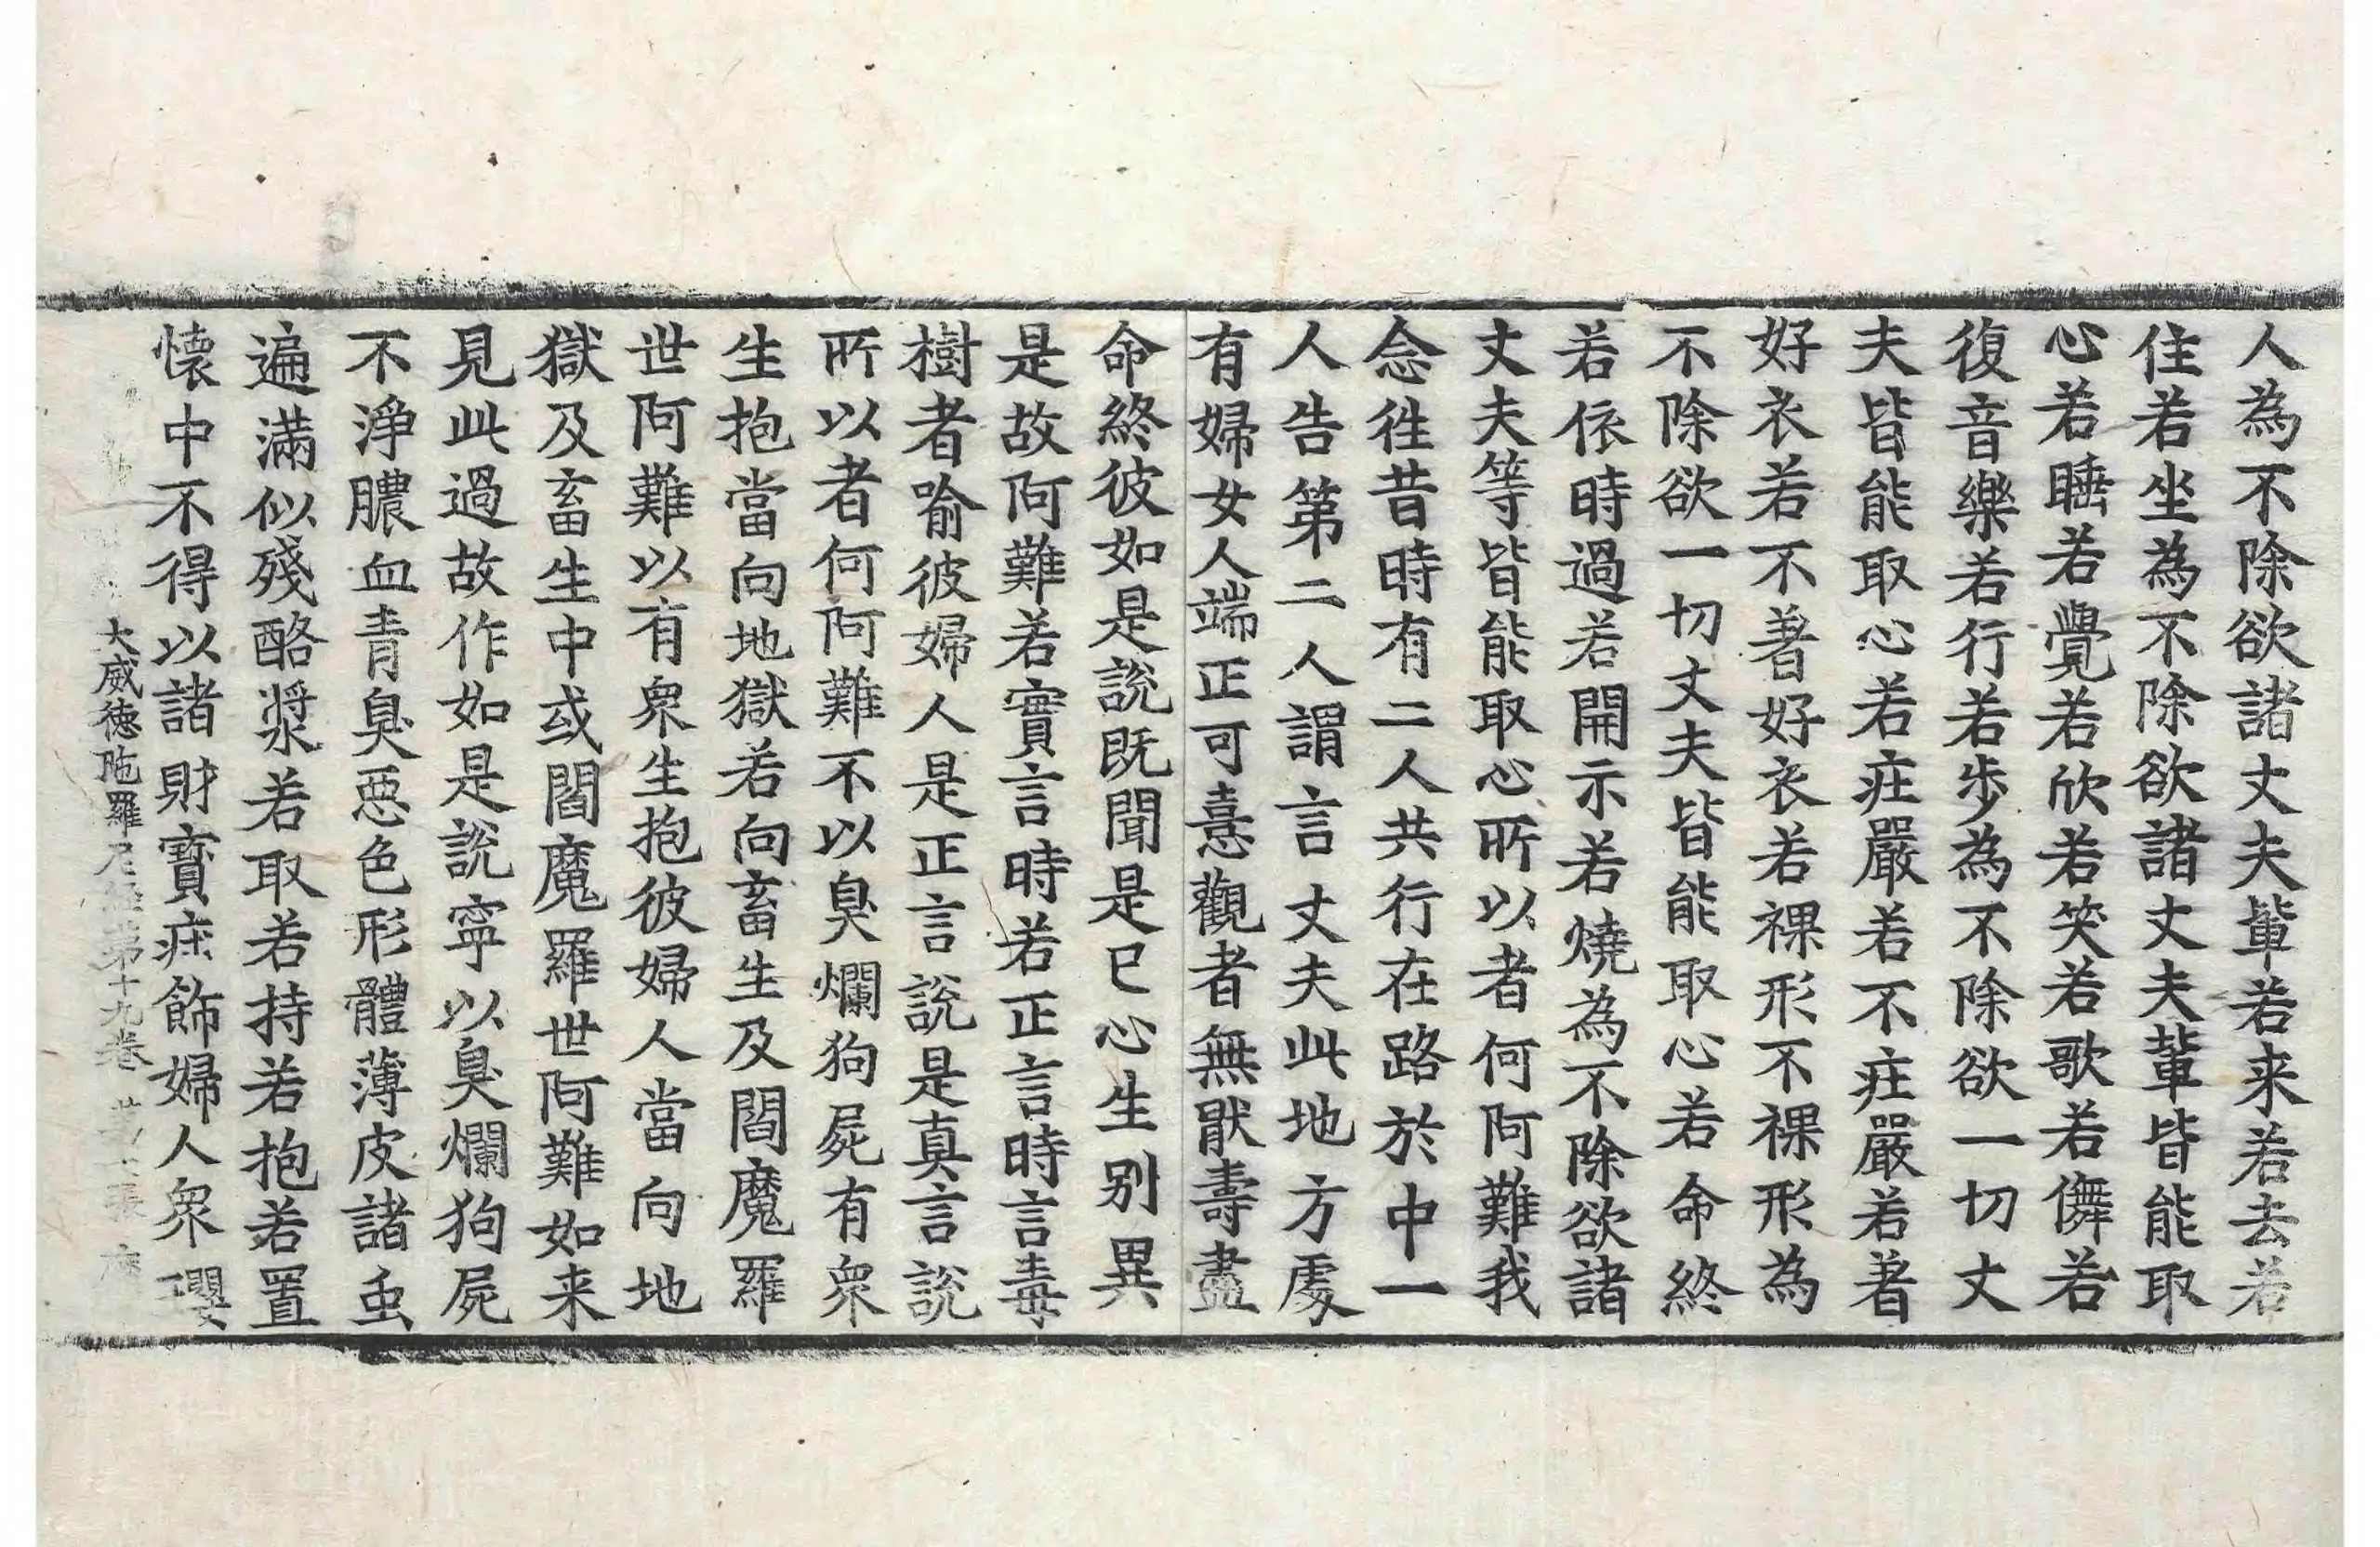 人為不除欲諸丈夫輩若来若去若
住若坐為不除欲諸丈夫輩皆能取
心若睡若覺若欣若笑若歌若儛若
復音樂若行若步為不除欲一切丈
夫皆能取心若疘嚴若不疘嚴若著
好衣若不著好衣若裸形不裸形為
不除欲一切丈夫皆能取心若命終
若依時過若開示若燒為不除欲諸
丈夫等皆能取心所以者何阿難我
念徃昔時有二人共行在路於中一
人告第二人謂言丈夫此地方處
有婦女人端正可憙觀者無猒壽盡
命終彼如是說既聞是已心生別異
是故阿難若實言時若正言時言毒
樹者喻彼婦人是正言說是真言說
所以者何阿難不以臭爛狗屍有衆
生抱當向地獄若向畜生及閻魔羅
世阿難以有衆生抱彼婦人當向地
獄及畜生中或閻魔羅世阿難如来
見此過故作如是說寧以臭爛狗屍
不淨膿血青臭惡色形體薄皮諸虫
遍滿似殘酪漿若取若持若抱若置
懐中不得以諸財寶疘飾婦人衆瓔
大威徳陁羅尼経第十九卷 張